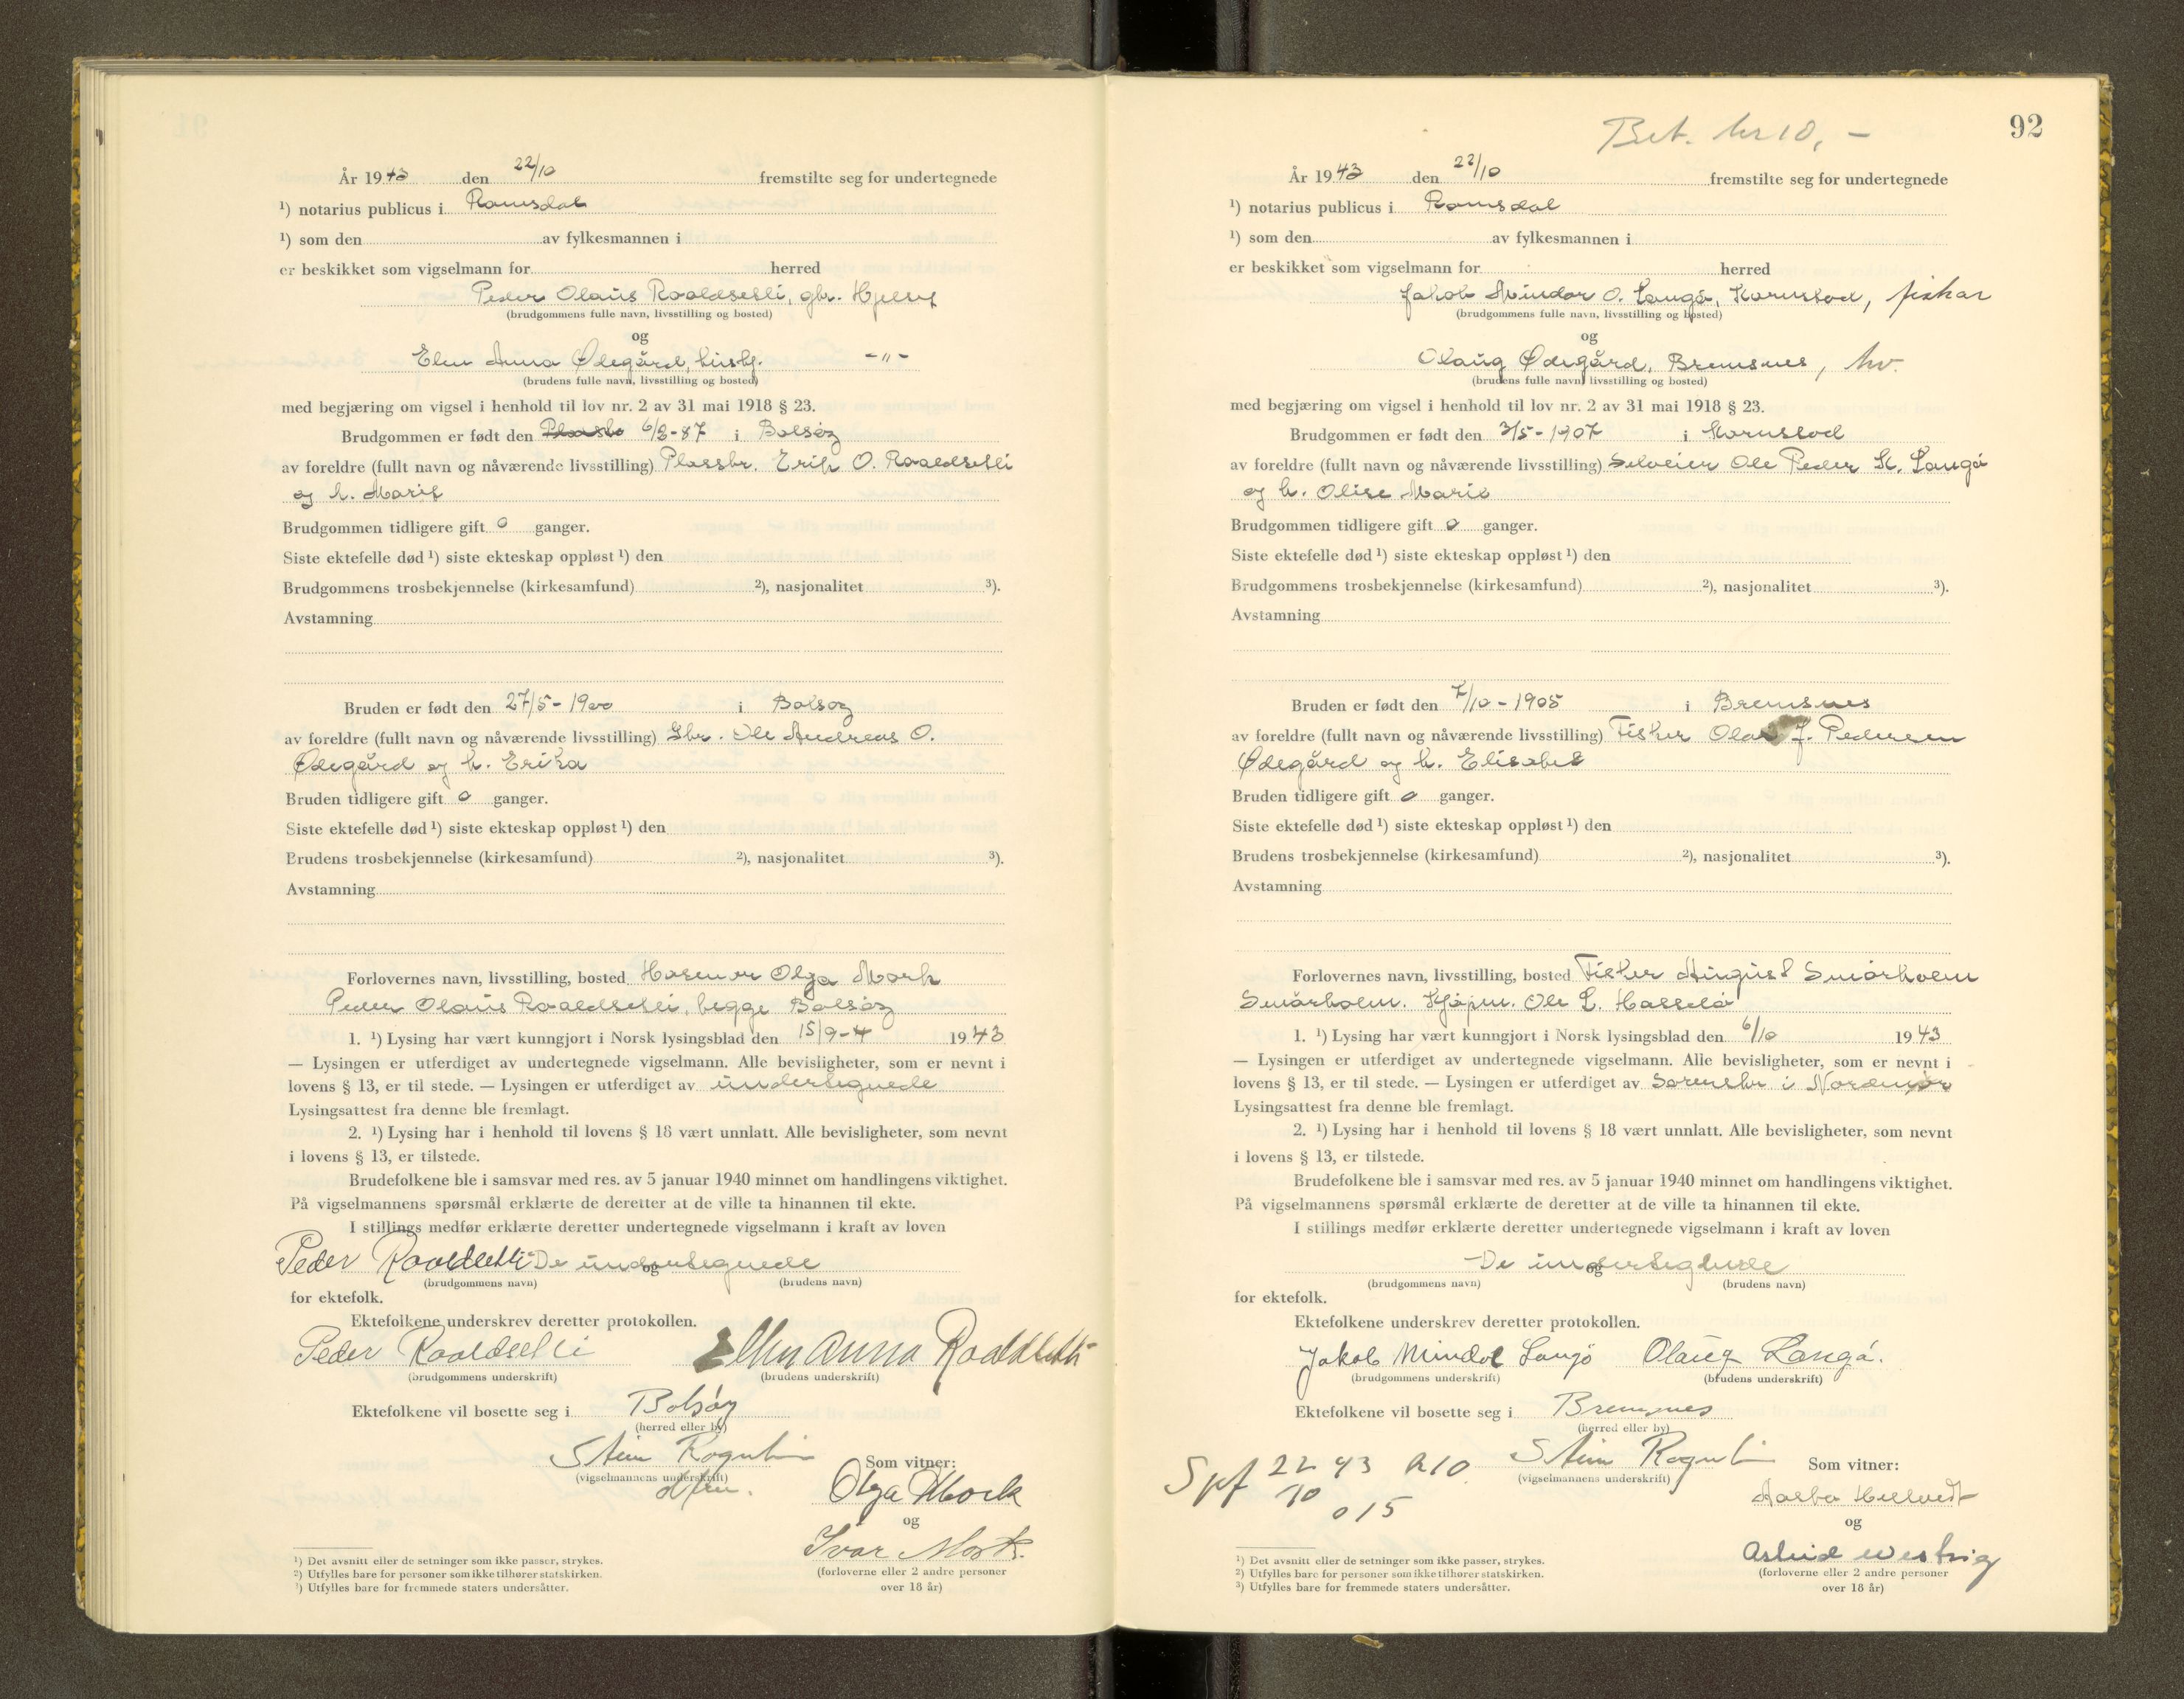 År 1943 den 22/10 fremstilte seg for undertegnede
¹) notarius publicus i Romsdal
¹) som den av fylkesmannen i
er beskikket som vigselmann for herred
Peder Olaus Roaldsetli, gbr. Hjelset
(brudgommens fulle navn, livsstilling og bosted)
og
Elen Anna Ødegård, husb. -"-
(brudens fulle navn, livsstilling og bosted)
med begjæring om vigsel i henhold til lov nr. 2 av 31 mai 1918 § 23.
Brudgommen er født den 6/8-87 i Bolsøy
av foreldre (fullt navn og nåværende livsstilling) Plassbr. Erik O. Roaldsetli
og h. Marit
Brudgommen tidligere gift 0 ganger.
Siste ektefelle død ¹) siste ekteskap oppløst ¹) den
Brudgommens trosbekjennelse (kirkesamfund) ²), nasjonalitet ³).
Avstamning
Bruden er født den 27/5-1900 i Bolsøy
av foreldre (fullt navn og nåværende livsstilling) Gbr. Ole Andreas O.
Ødegård og h. Erika
Bruden tidligere gift 0 ganger.
Siste ektefelle død ¹) siste ekteskap oppløst ¹) den
Brudens trosbekjennelse (kirkesamfund) ²), nasjonalitet ³).
Avstamning
Forlovernes navn, livsstilling, bosted Olga Mork
Peder Olaus Roaldsetli, begge Bolsøy
1. ¹) Lysing har vært kunngjort i Norsk lysingsblad den 15/9-4 1943
— Lysingen er utferdiget av undertegnede vigselmann. Alle bevisligheter, som er nevnt i
lovens § 13, er til stede. — Lysingen er utferdiget av undertegnede
Lysingsattest fra denne ble fremlagt.
2. ¹) Lysing har i henhold til lovens § 18 vært unnlatt. Alle bevisligheter, som nevnt
i lovens § 13, er tilstede.
Brudefolkene ble i samsvar med res. av 5 januar 1940 minnet om handlingens viktighet.
På vigselmannens spørsmål erklærte de deretter at de ville ta hinannen til ekte.
I stillings medfør erklærte deretter undertegnede vigselmann i kraft av loven
Peder Roaldsetli De undertegnede
og
(brudgommens navn) (brudens navn)
for ektefolk.
Ektefolkene underskrev deretter protokollen.
Peder Roaldsetli Ellen Anna Roaldsetli
(brudgommens underskrift) (brudens underskrift)
Ektefolkene vil bosette seg i Bolsøy
(herred eller by)
Stein Rognlien
(vigselmannens underskrift)
Som vitner:
Olga Mork
og
Ivar Mork.
(forloverne eller 2 andre personer
over 18 år)
¹) Det avsnitt eller de setninger som ikke passer, strykes.
²) Utfylles bare for personer som ikke tilhører statskirken.
³) Utfylles bare for fremmede staters undersåtter.
92
Bet. kr 10,-
År 1943 den 22/10 fremstilte seg for undertegnede
¹) notarius publicus i Romsdal
¹) som den av fylkesmannen i
er beskikket som vigselmann for herred
Jakob Mindor O. Langø, Kornstad, fisker
(brudgommens fulle navn, livsstilling og bosted)
og
Olaug Ødegård, Bremsnes, hv.
(brudens fulle navn, livsstilling og bosted)
med begjæring om vigsel i henhold til lov nr. 2 av 31 mai 1918 § 23.
Brudgommen er født den 3/5-1907 i Kornstad
av foreldre (fullt navn og nåværende livsstilling) Selveier Ole Peder K. Langø
og h. Olise Marie
Brudgommen tidligere gift 0 ganger.
Siste ektefelle død ¹) siste ekteskap oppløst ¹) den
Brudgommens trosbekjennelse (kirkesamfund) ²), nasjonalitet ³).
Avstamning
Bruden er født den 7/10-1905 i Bremsnes
av foreldre (fullt navn og nåværende livsstilling) Fisker J. Pedersen
Ødegård og h. Elisabet
Bruden tidligere gift 0 ganger.
Siste ektefelle død ¹) siste ekteskap oppløst ¹) den
Brudens trosbekjennelse (kirkesamfund) ²), nasjonalitet ³).
Avstamning
Forlovernes navn, livsstilling, bosted Fisker August Smørholm
Smørholm. Kjøpm. Ole L. Hasselø
1. ¹) Lysing har vært kunngjort i Norsk lysingsblad den 6/10 1943
— Lysingen er utferdiget av undertegnede vigselmann. Alle bevisligheter, som er nevnt i
lovens § 13, er til stede. — Lysingen er utferdiget av Sorenskr. i Nordmør
Lysingsattest fra denne ble fremlagt.
2. ¹) Lysing har i henhold til lovens § 18 vært unnlatt. Alle bevisligheter, som nevnt
i lovens § 13, er tilstede.
Brudefolkene ble i samsvar med res. av 5 januar 1940 minnet om handlingens viktighet.
På vigselmannens spørsmål erklærte de deretter at de ville ta hinannen til ekte.
I stillings medfør erklærte deretter undertegnede vigselmann i kraft av loven
De undertegnede
og
(brudgommens navn) (brudens navn)
for ektefolk.
Ektefolkene underskrev deretter protokollen.
Jakob Mindor Langø Olaug Langø.
(brudgommens underskrift) (brudens underskrift)
Ektefolkene vil bosette seg i Bremsnes
(herred eller by)
22/10 43 Stein Rognlien
(vigselmannens underskrift)
Som vitner:
og
Astrid
(forloverne eller 2 andre personer
over 18 år)
¹) Det avsnitt eller de setninger som ikke passer, strykes.
²) Utfylles bare for personer som ikke tilhører statskirken.
³) Utfylles bare for fremmede staters undersåtter.